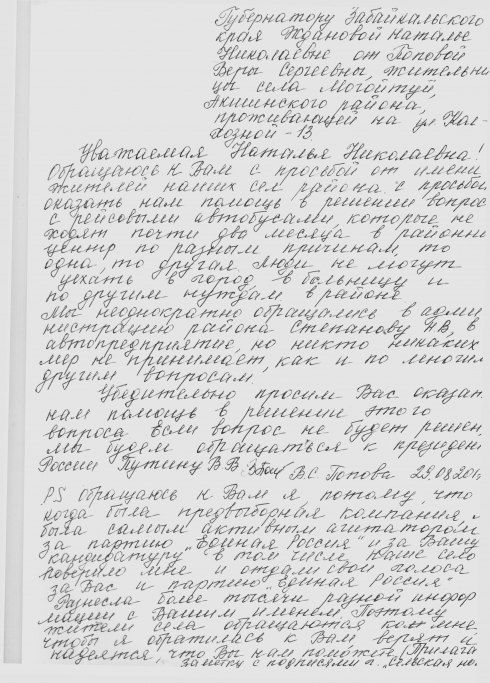 Губернатору Забайкальского
края Ждановой Наталье
Николаевне от Поповой
Веры Сергеевны, жительни
цы села Могойтуй,
Акшинского района,
проживающей на ул Кол-
хозной - 13
Уважаемая Наталья Николаевна!
Обращаюсь к Вам с просьбой от имени
жителей наших сел района с просьбой
оказать нам помощь в решении вопрос
с рейсовыми автобусами, которые не
ходят почти два месяца в районный
центр по разным причинам, то
одна, то другая. Люди не могут
уехать в город, в больницу и
по другим нуждам в районе
Мы неоднократно обращались в адми
нистрацию района Степанову АВ, в
автопредприятие, но никто никаких
мер не принимает, как и по многим
другим вопросам.
Убедительно просим Вас оказат
нам помощь в решении этого
вопроса. Если вопрос не будет решен,
мы будем обращаться к президен
России Путину В.В. В.С. Попова
PS Обращаюсь к Вам я, потому, что
когда была предвыборная компания,
была самым активным агитатором
за партию "Единая Россия" и за Вашу
кандидатуру, в том числе наше село
поверило мне и отдали свои голоса
за Вас и партию "Единая Россия"
Разнесла более тысячи разной инфор
мации с Вашим именем. Поэтому
жители села обращаются ко мне,
чтобы я обратилась к Вам верят и
надеятся, что Вы нам поможете (Прилага
заметку с подписями г. "Сельская но